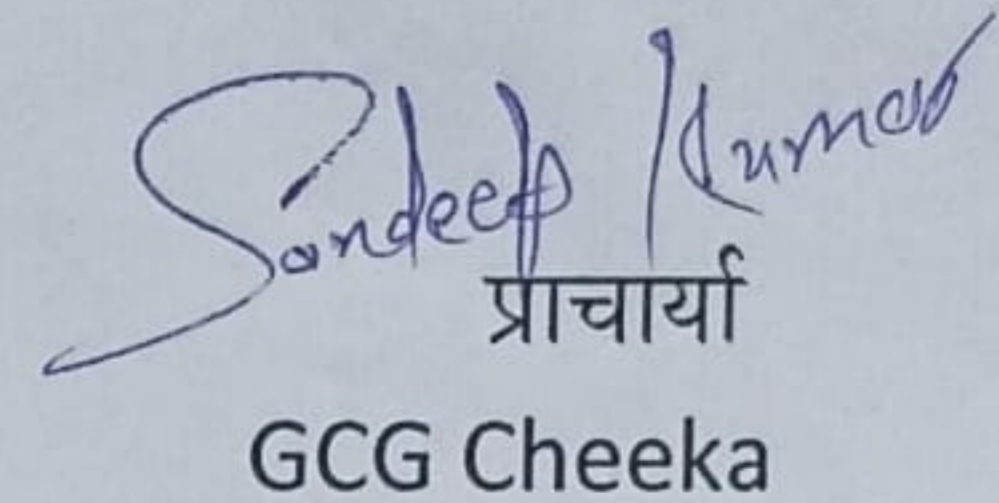 Sandeep Kumar
प्राचार्या
GCG Cheeka